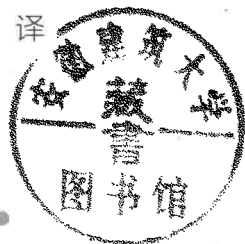 译
安徽建筑大学
藏
書
图书馆